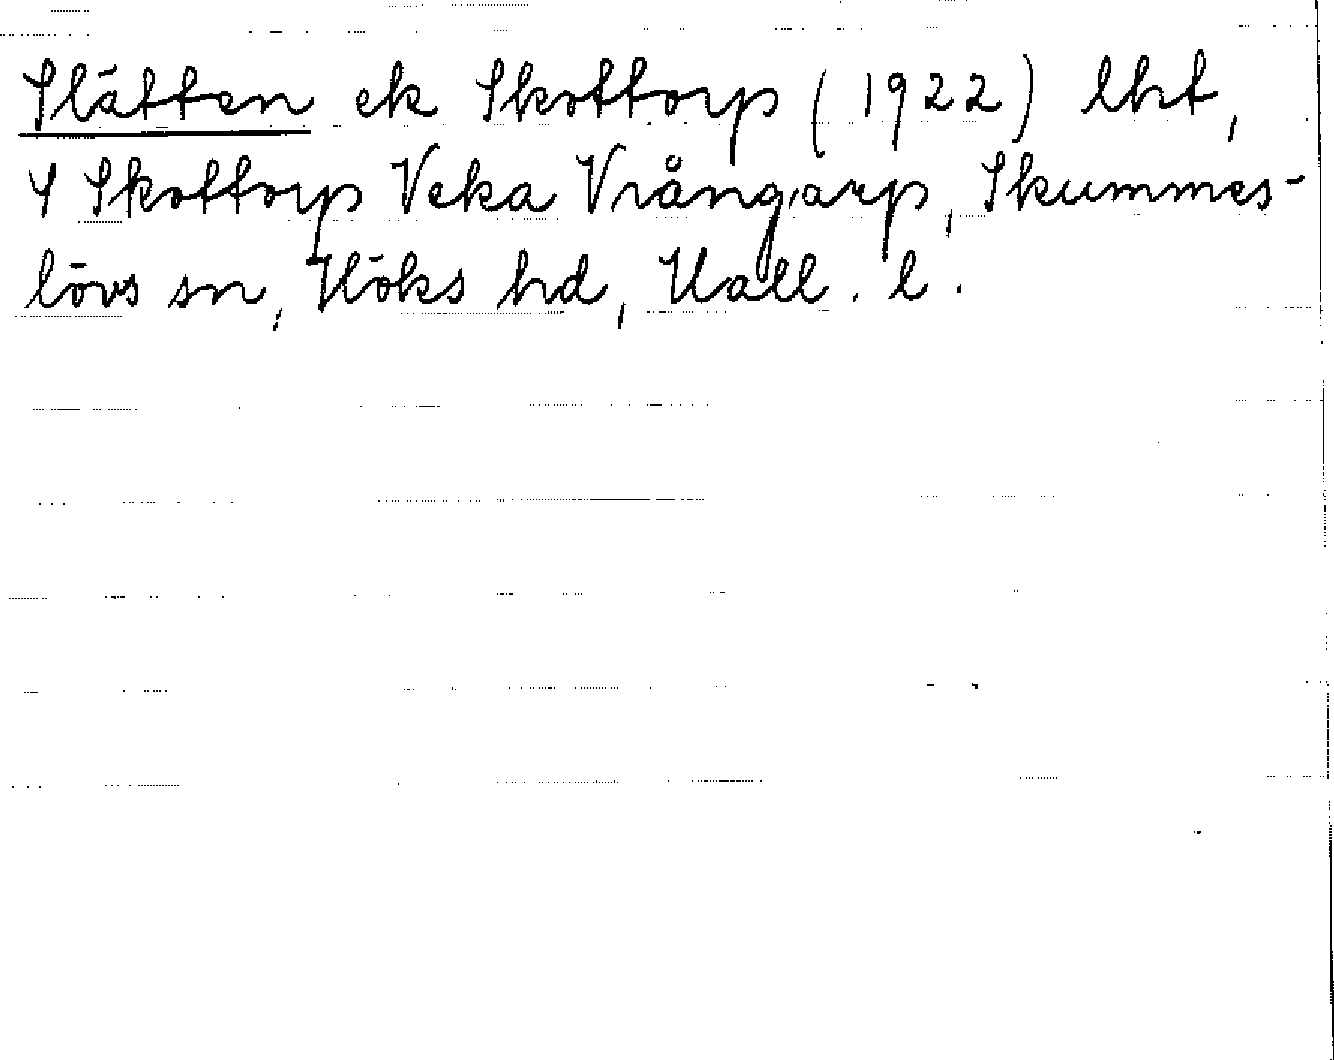 Slätten ek Skottorp (1922) lht,
4 Skottorp Veka Vrångarp, Skummes-
lövs sn, Höks hd, Hall. l.